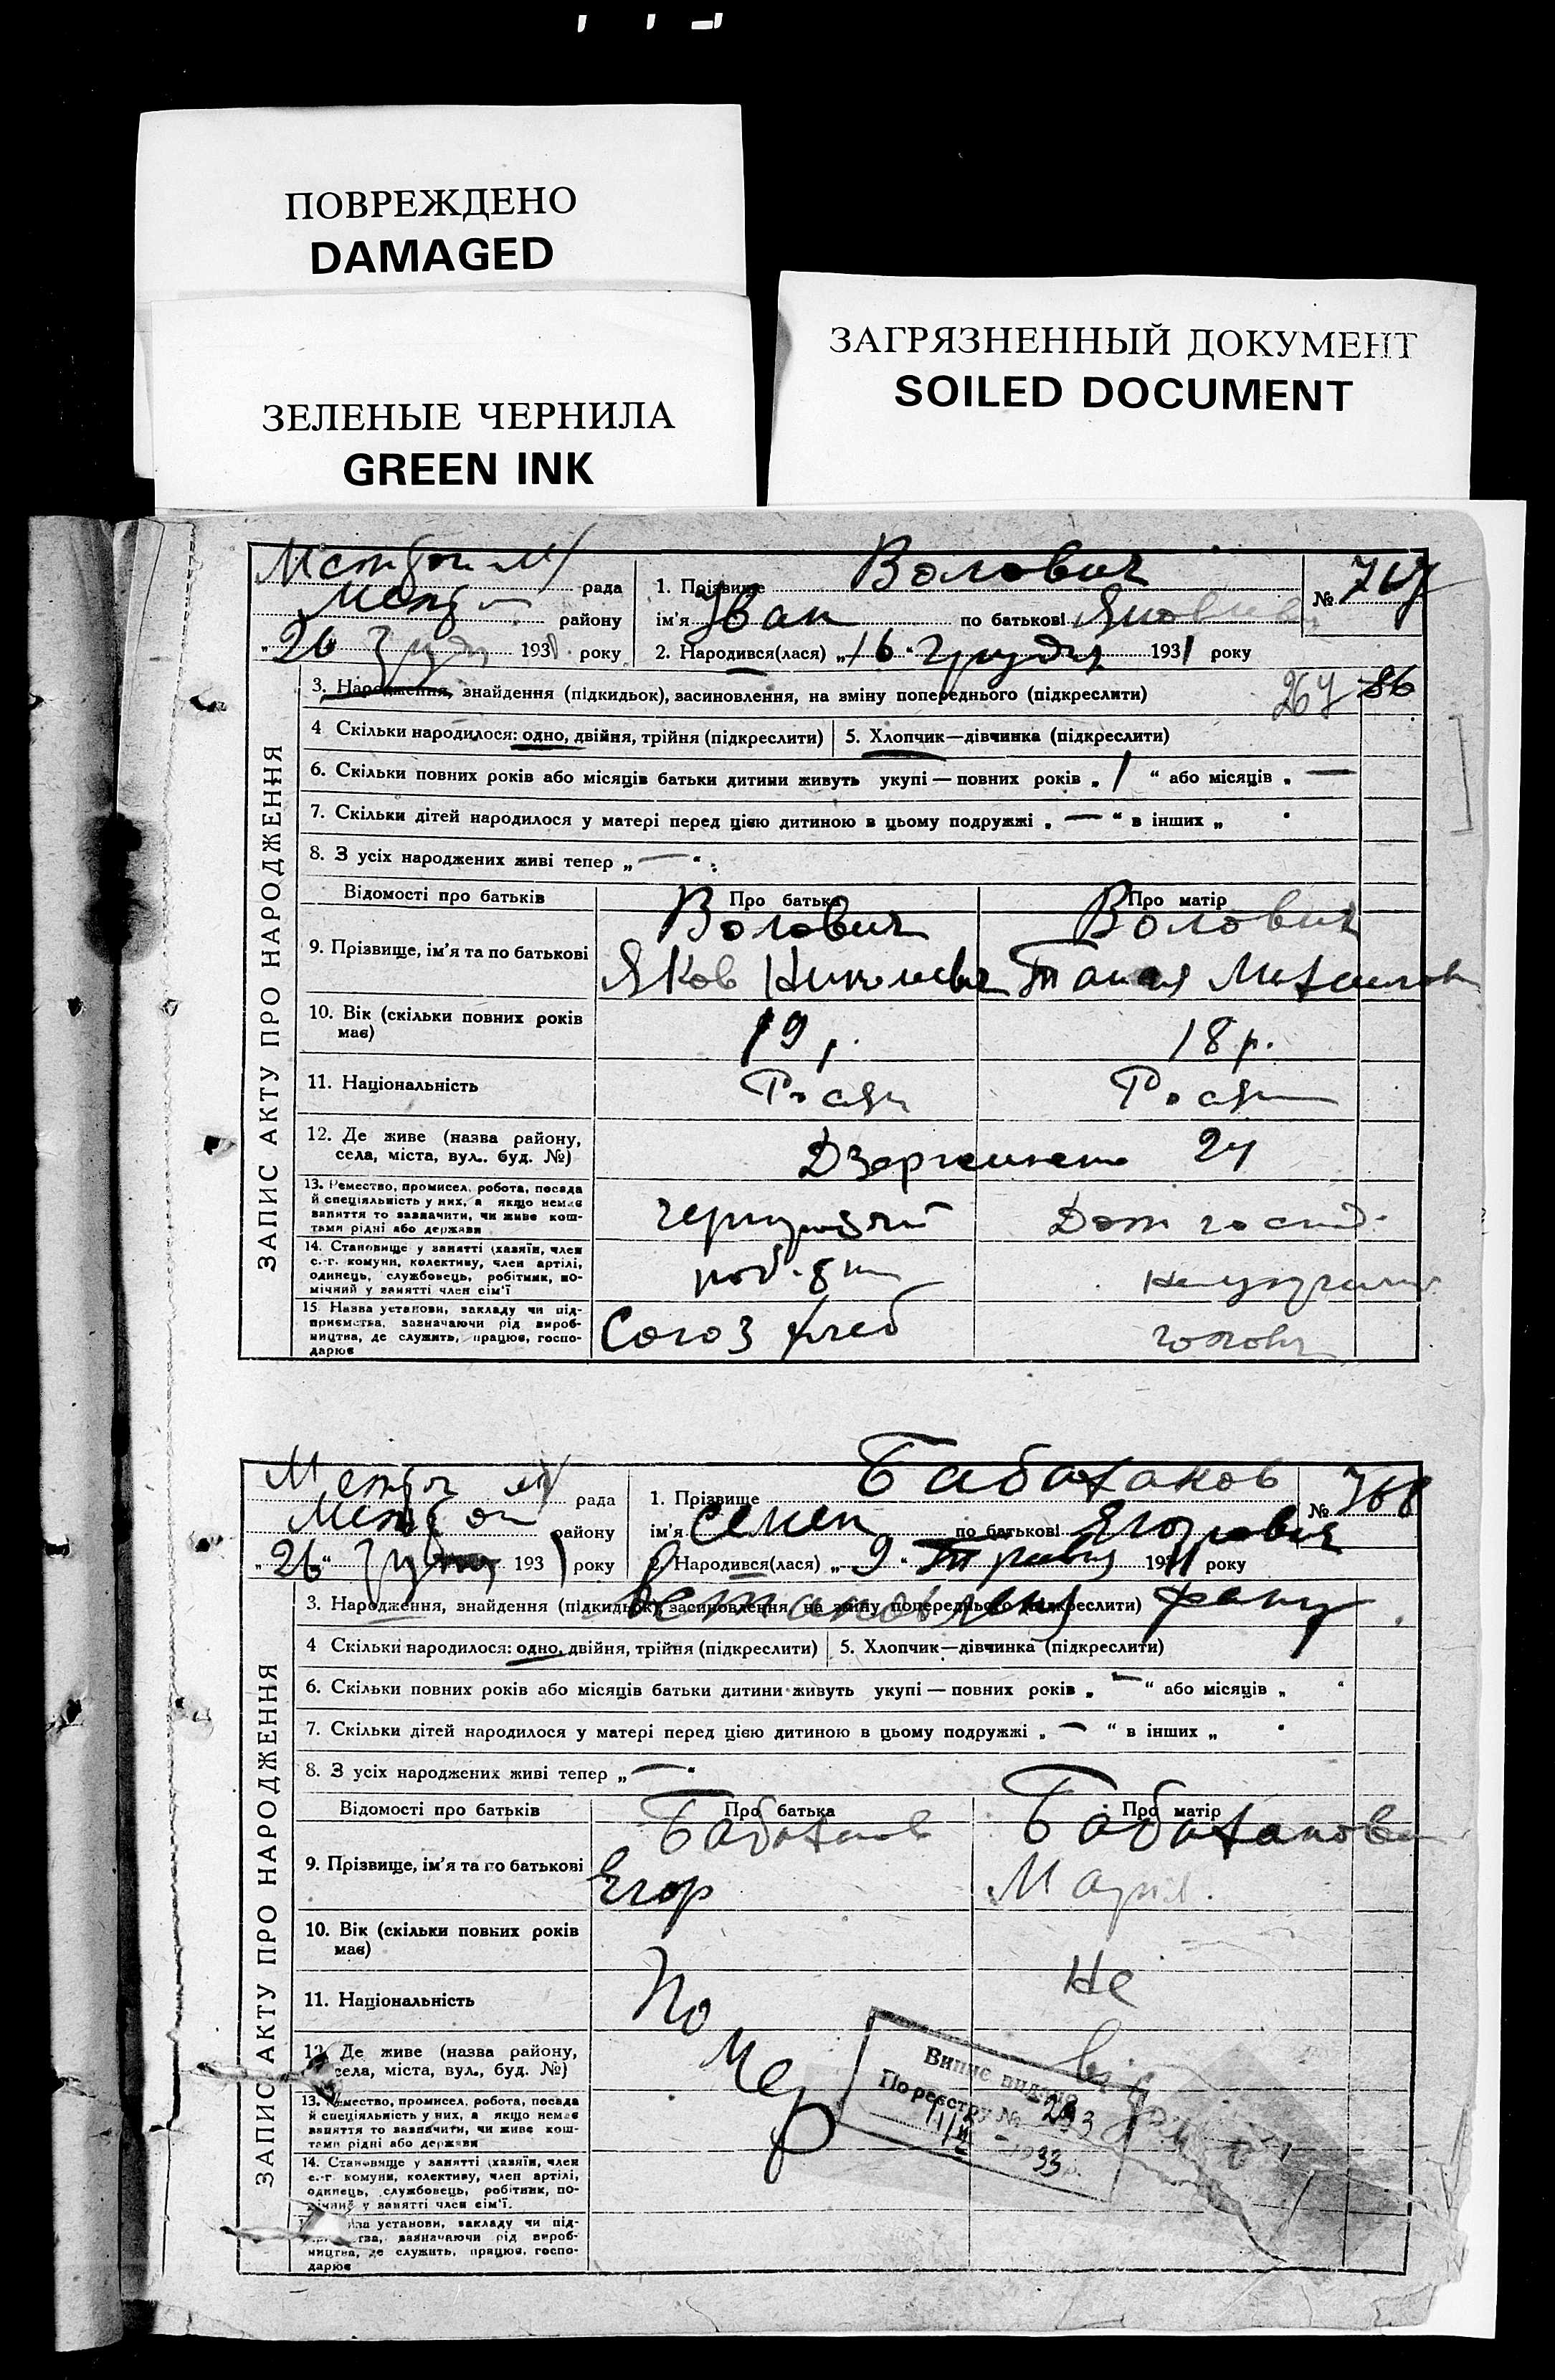 ПОВРЕЖДЕНО
DAMAGED
ЗАГРЯЗНЕННЫЙ ДОКУМЕНТ
SOILED DOCUMENT
ЗЕЛЕНЫЕ ЧЕРНИЛА
GREEN INK
ЗАПИС АКТУ ПРО НАРОДЖЕННЯ
рада
району
"26" 193 року
1. Прізвище Волович
ім'я Іван по батькові
2. Народився(лася) „16“ Грудня 1931 року
№ 767
3. Народження, знайдення (підкидьок), засиновлення, на зміну попереднього (підкреслити)
86
4 Скільки народилося: одно, двійня, трійня (підкреслити) 5. Хлопчик—дівчинка (підкреслити)
6. Скільки повних років або місяців батьки дитини живуть укупі — повних років „ 1 “ або місяців „ —
7. Скільки дітей народилося у матері перед цією дитиною в цьому подружжі „ — “ в інших „ “
8. З усіх народжених живі тепер „ — “
Відомості про батьків Про батька Про матір
9. Прізвище, ім'я та по батькові Волович Волович
Яков
10. Вік (скільки повних років має) 19 р. 18 р.
11. Національність
12. Де живе (назва району, села, міста, вул., буд. №)
13. Ремество, промисел, робота, посада й спеціяльність у них, а якщо немає заняття то зазначити, чи живе коштами рідні або держави
14. Становище у занятті (хазяїн, член с.-г. комуни, колективу, член артілі, одинець, службовець, робітник, помічний у занятті член сім'ї
15. Назва установи, закладу чи підприємства, зазначаючи рід виробництва, де служить, працює, господарює
Союз хлеб
ЗАПИС АКТУ ПРО НАРОДЖЕННЯ
рада
району
"26" 193 року
1. Прізвище Бабаханов
ім'я Семен по батькові Ягорович
2. Народився(лася) „9“ Травня 19 року
№ 768
3. Народження, знайдення (підкидьок), засиновлення, на зміну попереднього (підкреслити)
4 Скільки народилося: одно, двійня, трійня (підкреслити) 5. Хлопчик—дівчинка (підкреслити)
6. Скільки повних років або місяців батьки дитини живуть укупі — повних років „ — “ або місяців „ “
7. Скільки дітей народилося у матері перед цією дитиною в цьому подружжі „ — “ в інших „ “
8. З усіх народжених живі тепер „ — “
Відомості про батьків Про батька Про матір
9. Прізвище, ім'я та по батькові Бабаханов Бабаханова
Егор Марія
10. Вік (скільки повних років має)
11. Національність
По Не
12. Де живе (назва району, села, міста, вул., буд. №)
мер
Випис видано
По реєстру №
1933
13. Ремество, промисел, робота, посада й спеціяльність у них, а якщо немає заняття то зазначити, чи живе коштами рідні або держави
14. Становище у занятті (хазяїн, член с.-г. комуни, колективу, член артілі, одинець, службовець, робітник, помічний у занятті член сім'ї.
15. Назва установи, закладу чи підприємства, зазначаючи рід виробництва, де служить, працює, господарює